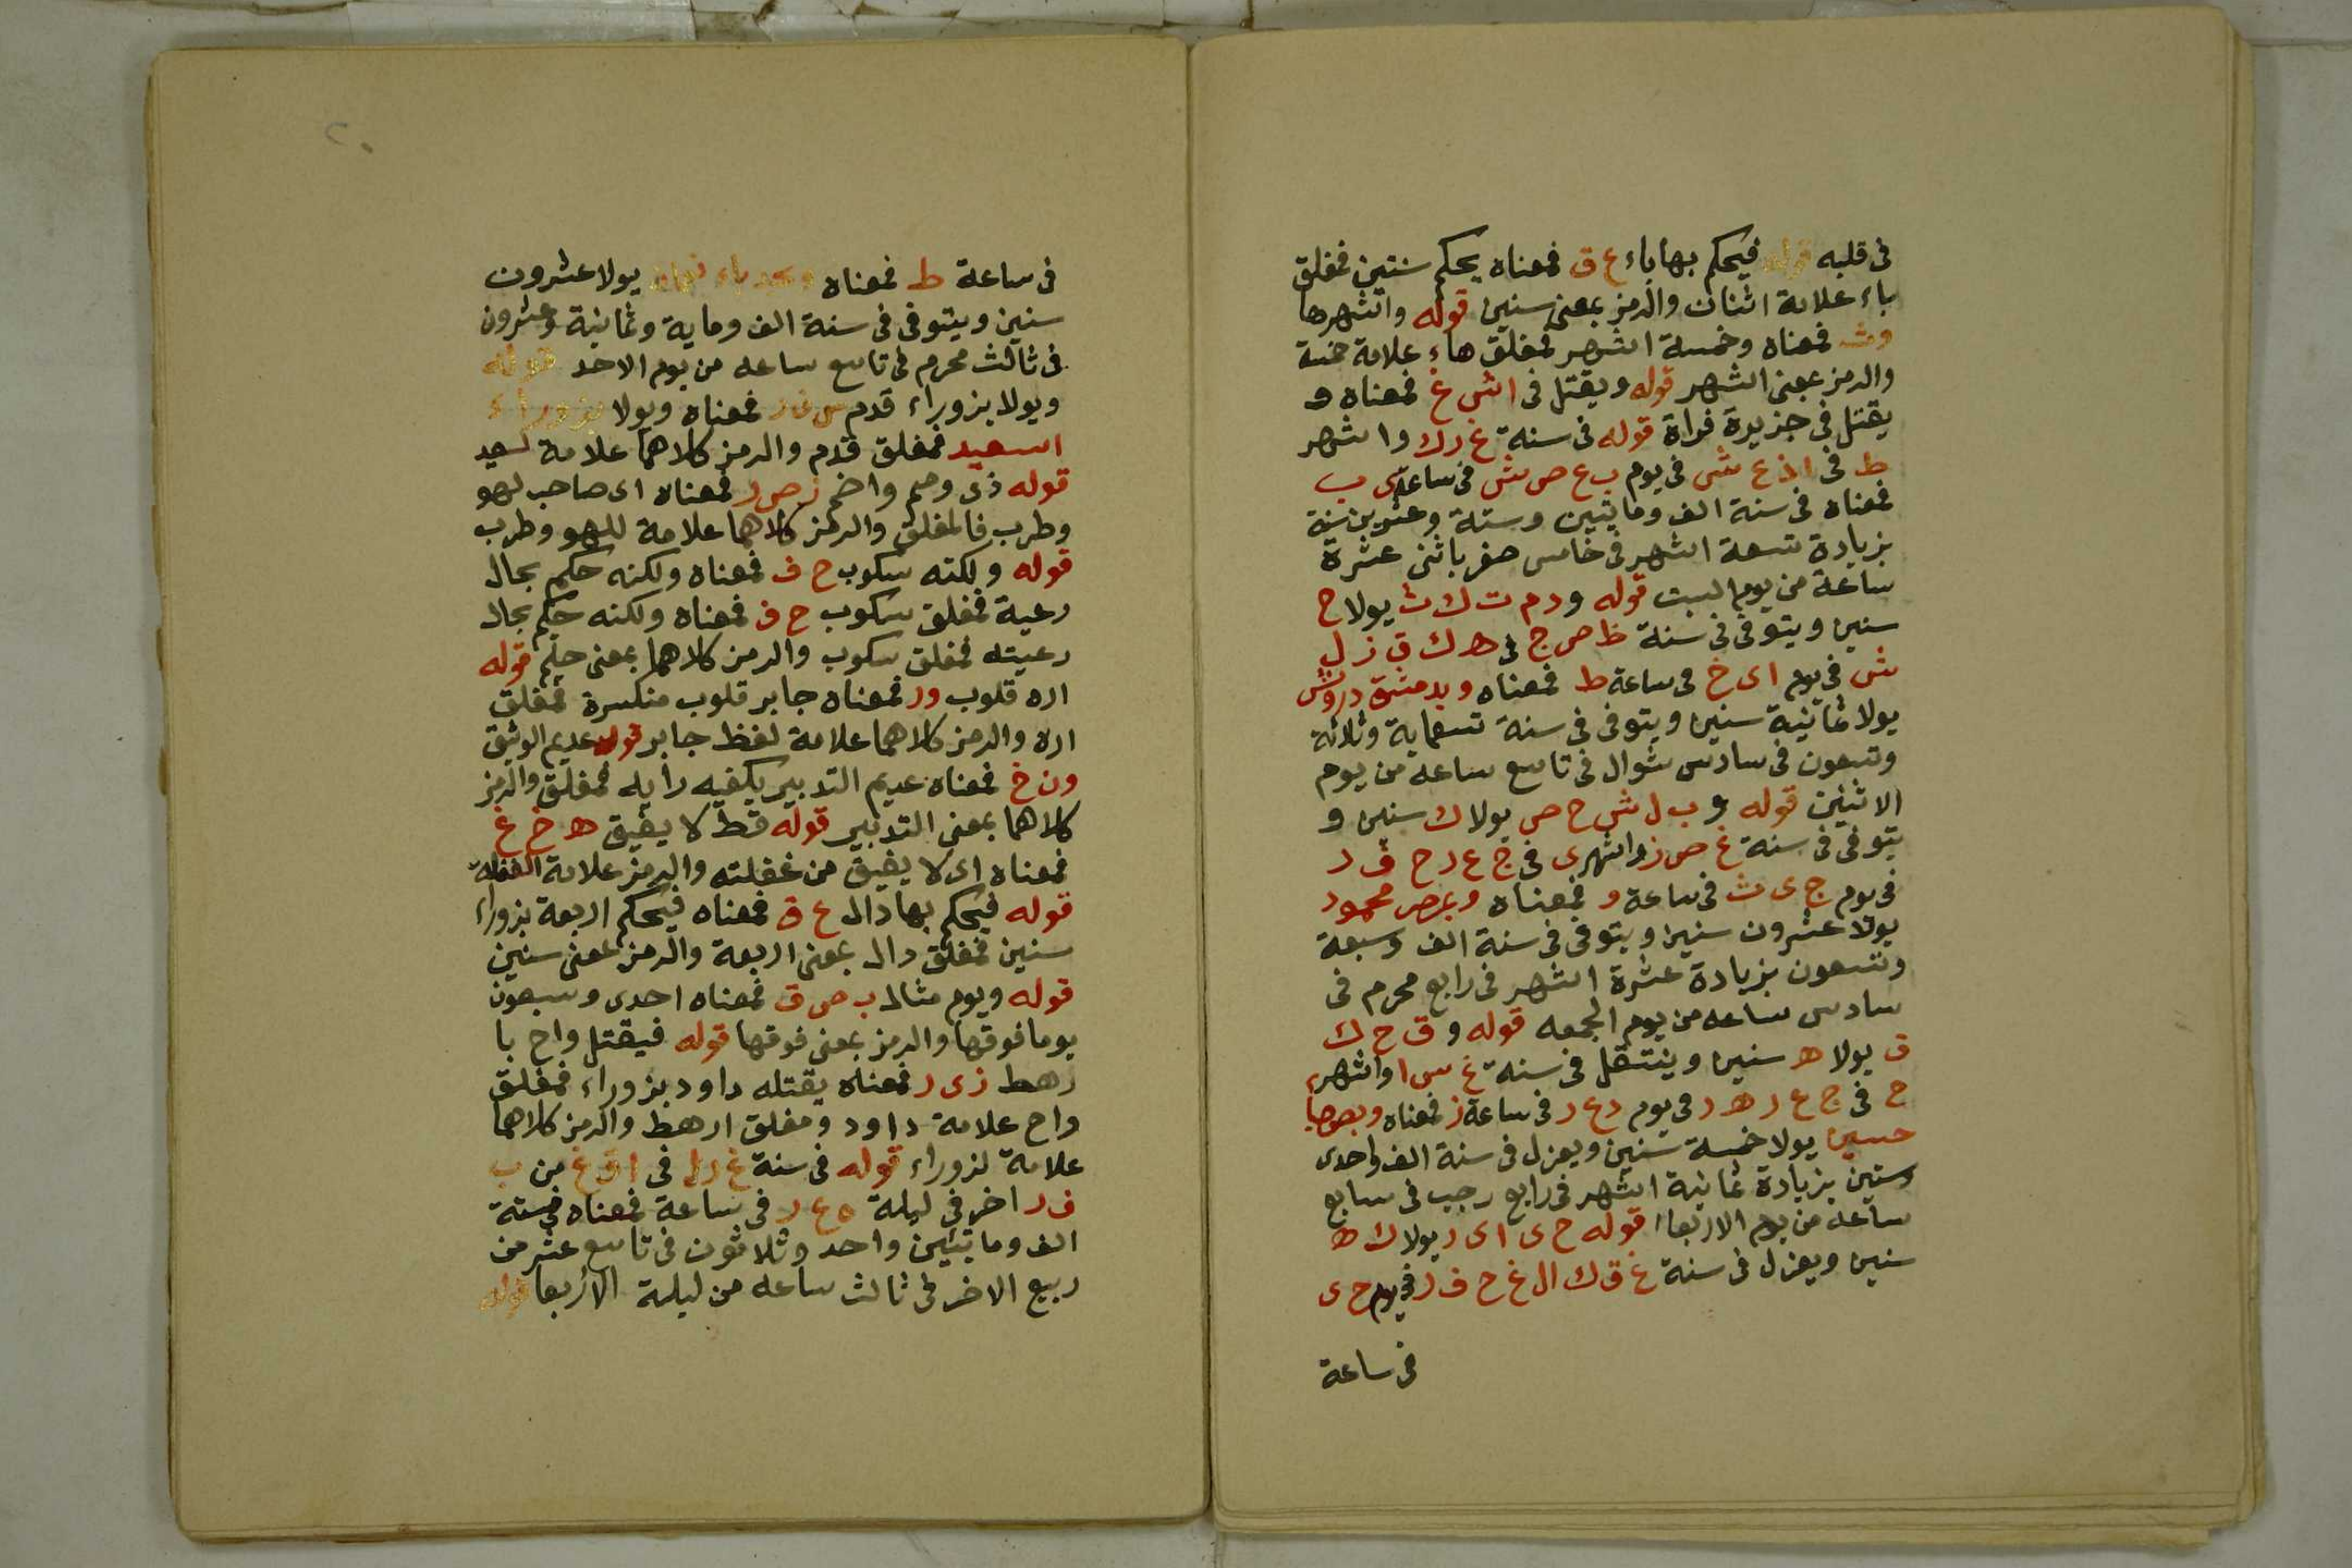 فى قلبه قوله فيحكم بها باء ع ق فمعناه يحكم سنتين فمغلق
باء علامة اثنان والرمز بمعنى سنين قوله واشهرها
وث فمعناه وخمسة اشهر فمغلق هاء علامة خمسة
والرمز بمعنى اشهر قوله ويقتل فى اش غ فمعناه و
يقتل فى جزيرة فراة قوله فى سنة غ رك واشهر
ط فى اخ ع ش فى يوم ب ع ص ش فى ساعة ى ب
فمعناه فى سنة الف ومايتين وستة وعشرين سنة
بزيادة تسعة اشهر فى خامس صفر باثنى عشرة
ساعة من يوم السبت قوله ودم ت ك ث يولا ح
سنين ويتوفى فى سنة ظ ص ج فى هـ ك ق ز ل
ش فى يوم اى خ فى ساعة ط فمعناه وبدمشق درويش
يولا ثمانية سنين ويتوفى فى سنة تسعماية وثلاثة
وتسعون فى سادس شوال فى تاسع ساعة من يوم
الاثنين قوله و ب ل ش ح ص يولا ك سنين و
يتوفى فى سنة غ ص ز واشهرى فى ج ع ر ح ف ر
فى يوم ج ى ث فى ساعة و فمعناه وبمصر محمود
يولا عشرون سنين ويتوفى فى سنة الف وسبعة
وتسعون بزيادة عشرة اشهر فى رابع محرم فى
سادس ساعه من يوم الجمعه قوله و ق ح ك
ق يولا هـ سنين وينتقل فى سنة غ س ا واشهر
ح فى ج ع ر هـ ر فى يوم دع ر فى ساعة ز فمعناه
حسين يولا خمسة سنين ويعزل فى سنة الف واحدى
وستين بزيادة ثمانية اشهر فى رابع رجب فى سابع
ساعة من يوم الاربعا قوله ح ى اى ر يولا ك هـ
سنين ويعزل فى سنة غ ق ك ال غ ح ف ر فى يوم ح ى
فى ساعة
٢٠
فى ساعة ط فمعناه يولا عشرون
سنين ويتوفى فى سنة الف وماية وثمانية وعشرون
فى ثالث محرم فى تاسع ساعه من يوم الاحد قوله
ويولا بزوراء قدم فمعناه ويولا بزوراء
اسعيد فمغلق قدم والرمز كلاهما علامة لسعيد
قوله ذى وصم واخم ز ص ر فمعناه اى صاحب لهو
وطرب فالمغلق والرمز كلاهما علامة للهو وطرب
قوله ولكنه سكوب ح ف فمعناه ولكنه حكم بحال
رعية فمغلق سكوب ح ف فمعناه ولكنه حكم بحال
رعيته فمغلق سكوب والرمز كلاهما بمعنى حلم قوله
اره قلوب ور فمعناه جابر قلوب منكسرة فمغلق
اره والرمز كلاهما علامة لفظ جابر قوله عديم الوثيق
ون خ فمعناه عديم التدبير يكفيه رايه فمغلق والرمز
كلاهما بمعنى التدبير قوله قط لا يفيق هـ خ غ
فمعناه اى لا يفيق من غفلته والرمز علامة الغفلة
قوله فيحكم بها دال ع ق فمعناه فيحكم اربعة بزوراء
سنين فمغلق دال بمعنى اربعة والرمز بمعنى سنين
قوله ويوم مثال ب ص ق فمعناه احدى وسبعون
يوما فوقها والرمز بمعنى فوقها قوله فيقتل واح با
رهط زى ر فمعناه يقتله داود بزوراء فمغلق
واح علامة داود ومغلق ارهط والرمز كلاهما
علامة لزوراء قوله فى سنة غ ر ل فى ا ق غ من ب
ف ر اخر فى ليلة ه ع ر فى ساعة فمعناه فى سنة
الف ومايتين واحد وثلاثون فى تاسع عشر من
ربيع الاخر فى ثالث ساعه من ليلة الاربعا قوله